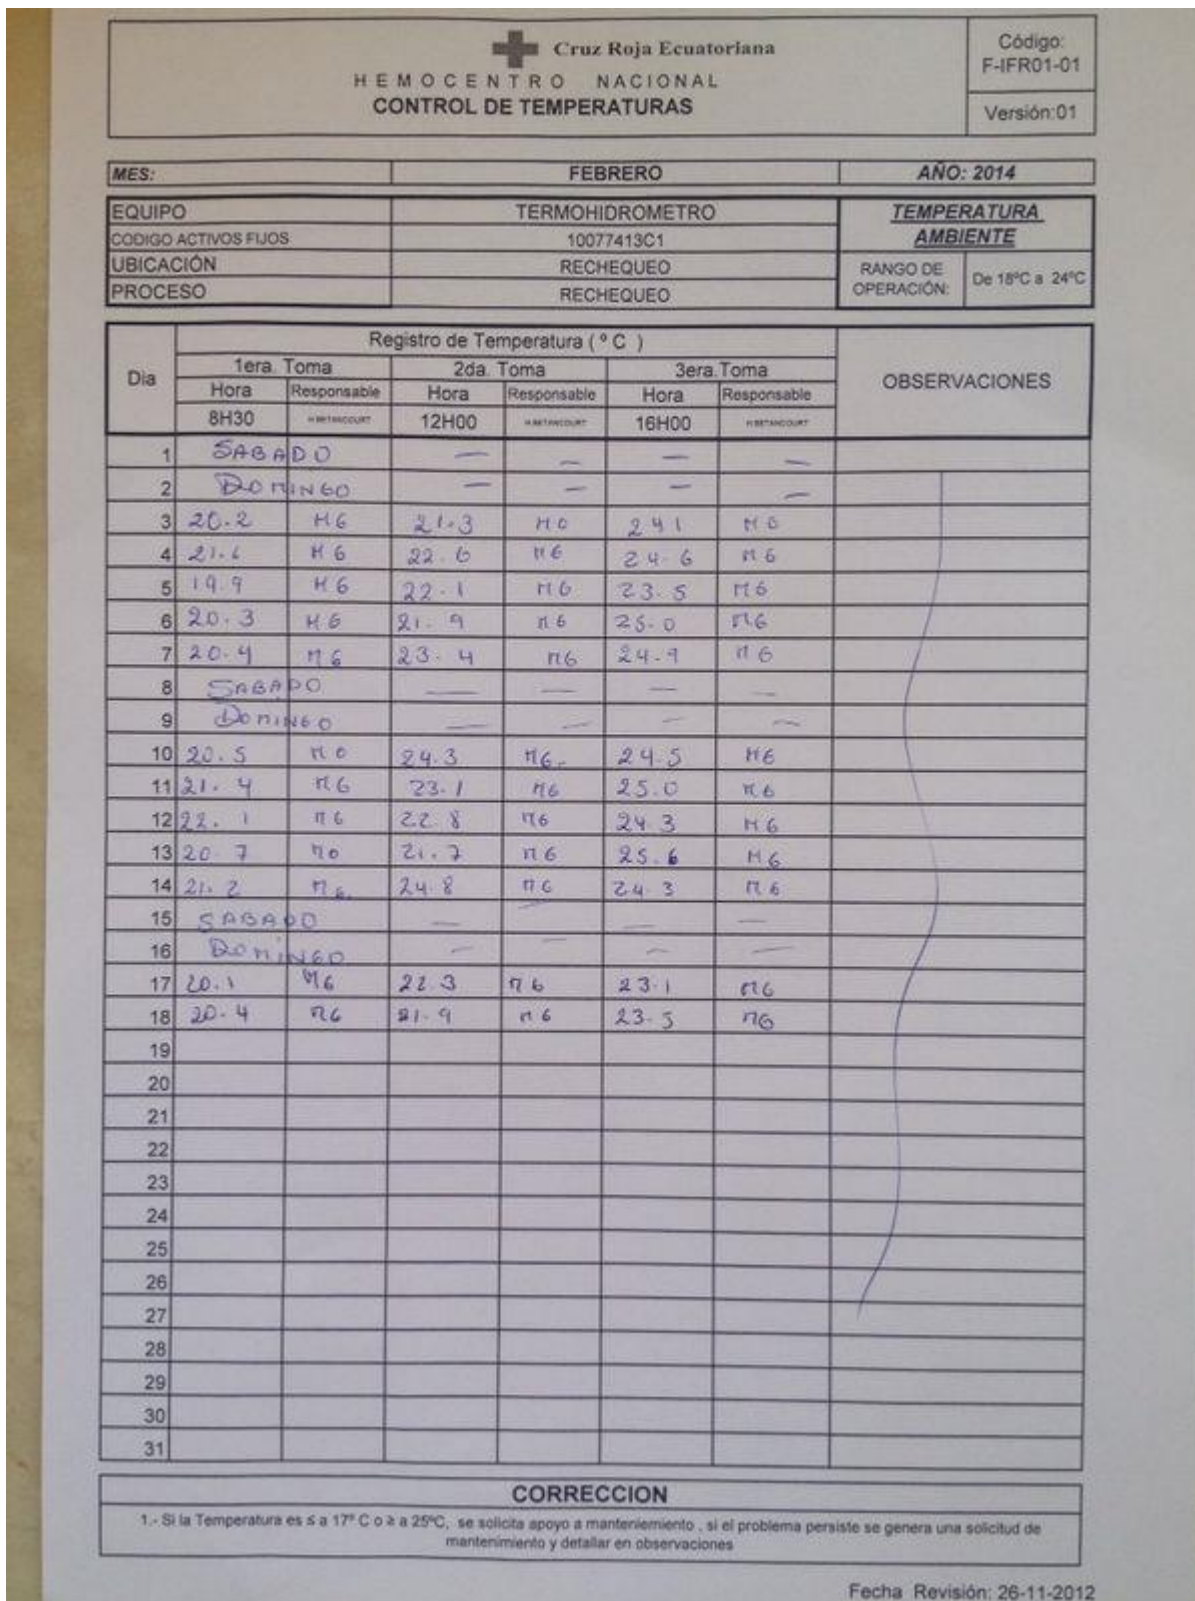 Cruz Roja Ecuatoriana
HEMOCENTRO NACIONAL
CONTROL DE TEMPERATURAS
Código:
F-IFR01-01
Versión:01
MES: FEBRERO AÑO: 2014
EQUIPO TERMOHIDROMETRO
CODIGO ACTIVOS FIJOS 10077413C1
UBICACIÓN RECHEQUEO
PROCESO RECHEQUEO
TEMPERATURA
AMBIENTE
RANGO DE
OPERACIÓN:
De 18ºC a 24ºC
Registro de Temperatura ( º C )
Dia 1era. Toma 2da. Toma 3era.Toma OBSERVACIONES
Hora Responsable Hora Responsable Hora Responsable
8H30 H BETANCOURT 12H00 H BETANCOURT 16H00 H BETANCOURT
1 SABADO — — — —
2 DOMINGO — — — —
3 20.2 MG 21.3 MG 24 1 MG
4 21. MG 22.6 MG 24.6 MG
5 19.9 MG 22.1 MG 23.5 MG
6 20.3 MG 21.9 MG 25.0 MG
7 20.4 MG 23.4 MG 24.9 MG
8 SABADO — — — —
9 DOMINGO — — — —
10 20.5 MG 24.3 MG. 24.5 MG
11 21.4 MG 23.1 MG 25.0 MG
12 22.1 MG 22.8 MG 24.3 MG
13 20.7 MG 21.7 MG 25.6 MG
14 21.2 MG. 24.8 MG 24.3 MG
15 SABADO — — — —
16 DOMINGO — — — —
17 20.1 MG 22.3 MG 23.1 MG
18 20.4 MG 21.9 MG 23.5 MG
19
20
21
22
23
24
25
26
27
28
29
30
31
CORRECCION
1.- Si la Temperatura es ≤ a 17º C o ≥ a 25ºC, se solicita apoyo a manteniemiento , si el problema persiste se genera una solicitud de
mantenimiento y detallar en observaciones
Fecha Revisión: 26-11-2012